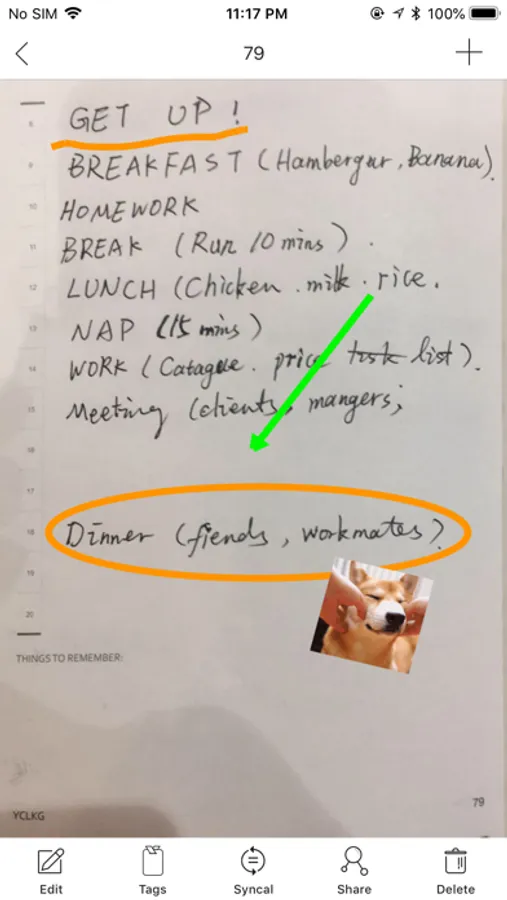 No SIM 11:17 PM 100%
79
GET UP!
8
BREAKFAST (Hambergur, Banana).
9
HOMEWORK
10
BREAK (Run 10 mins).
11
LUNCH (Chicken. milk. rice.
12
NAP (15 mins)
13
WORK (Catague. price task list).
14
Meeting (clients, mangers;
15
16
17
Dinner (fiends, workmates)
18
19
20
THINGS TO REMEMBER:
79
YCLKG
Edit Tags Syncal Share Delete